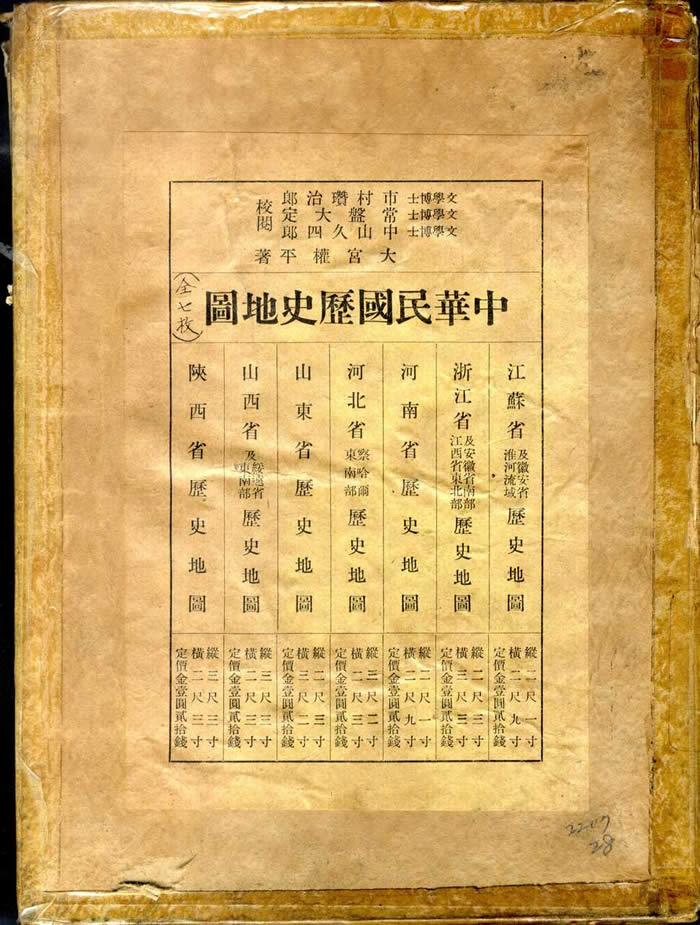 文學博士 市村瓚治郎
文學博士 常盤大定
文學博士 中山久四郎
校閱
大宮權平著
中華民國歷史地圖
(全七枚)
江蘇省 及徽安省淮河流域 歷史地圖
縱二尺一寸
橫二尺九寸
定價金壹圓貳拾錢
浙江省 及安徽省南部江西省東北部 歷史地圖
縱二尺三寸
橫二尺三寸
定價金壹圓貳拾錢
河南省歷史地圖
縱二尺一寸
橫二尺九寸
定價金壹圓貳拾錢
河北省 察哈爾東南部 歷史地圖
縱三尺二寸
橫二尺三寸
定價金壹圓貳拾錢
山東省歷史地圖
縱二尺三寸
橫三尺二寸
定價金壹圓貳拾錢
山西省 及綏遠省東南部 歷史地圖
縱三尺三寸
橫二尺三寸
定價金壹圓貳拾錢
陝西省歷史地圖
縱三尺三寸
橫二尺三寸
定價金壹圓貳拾錢
28